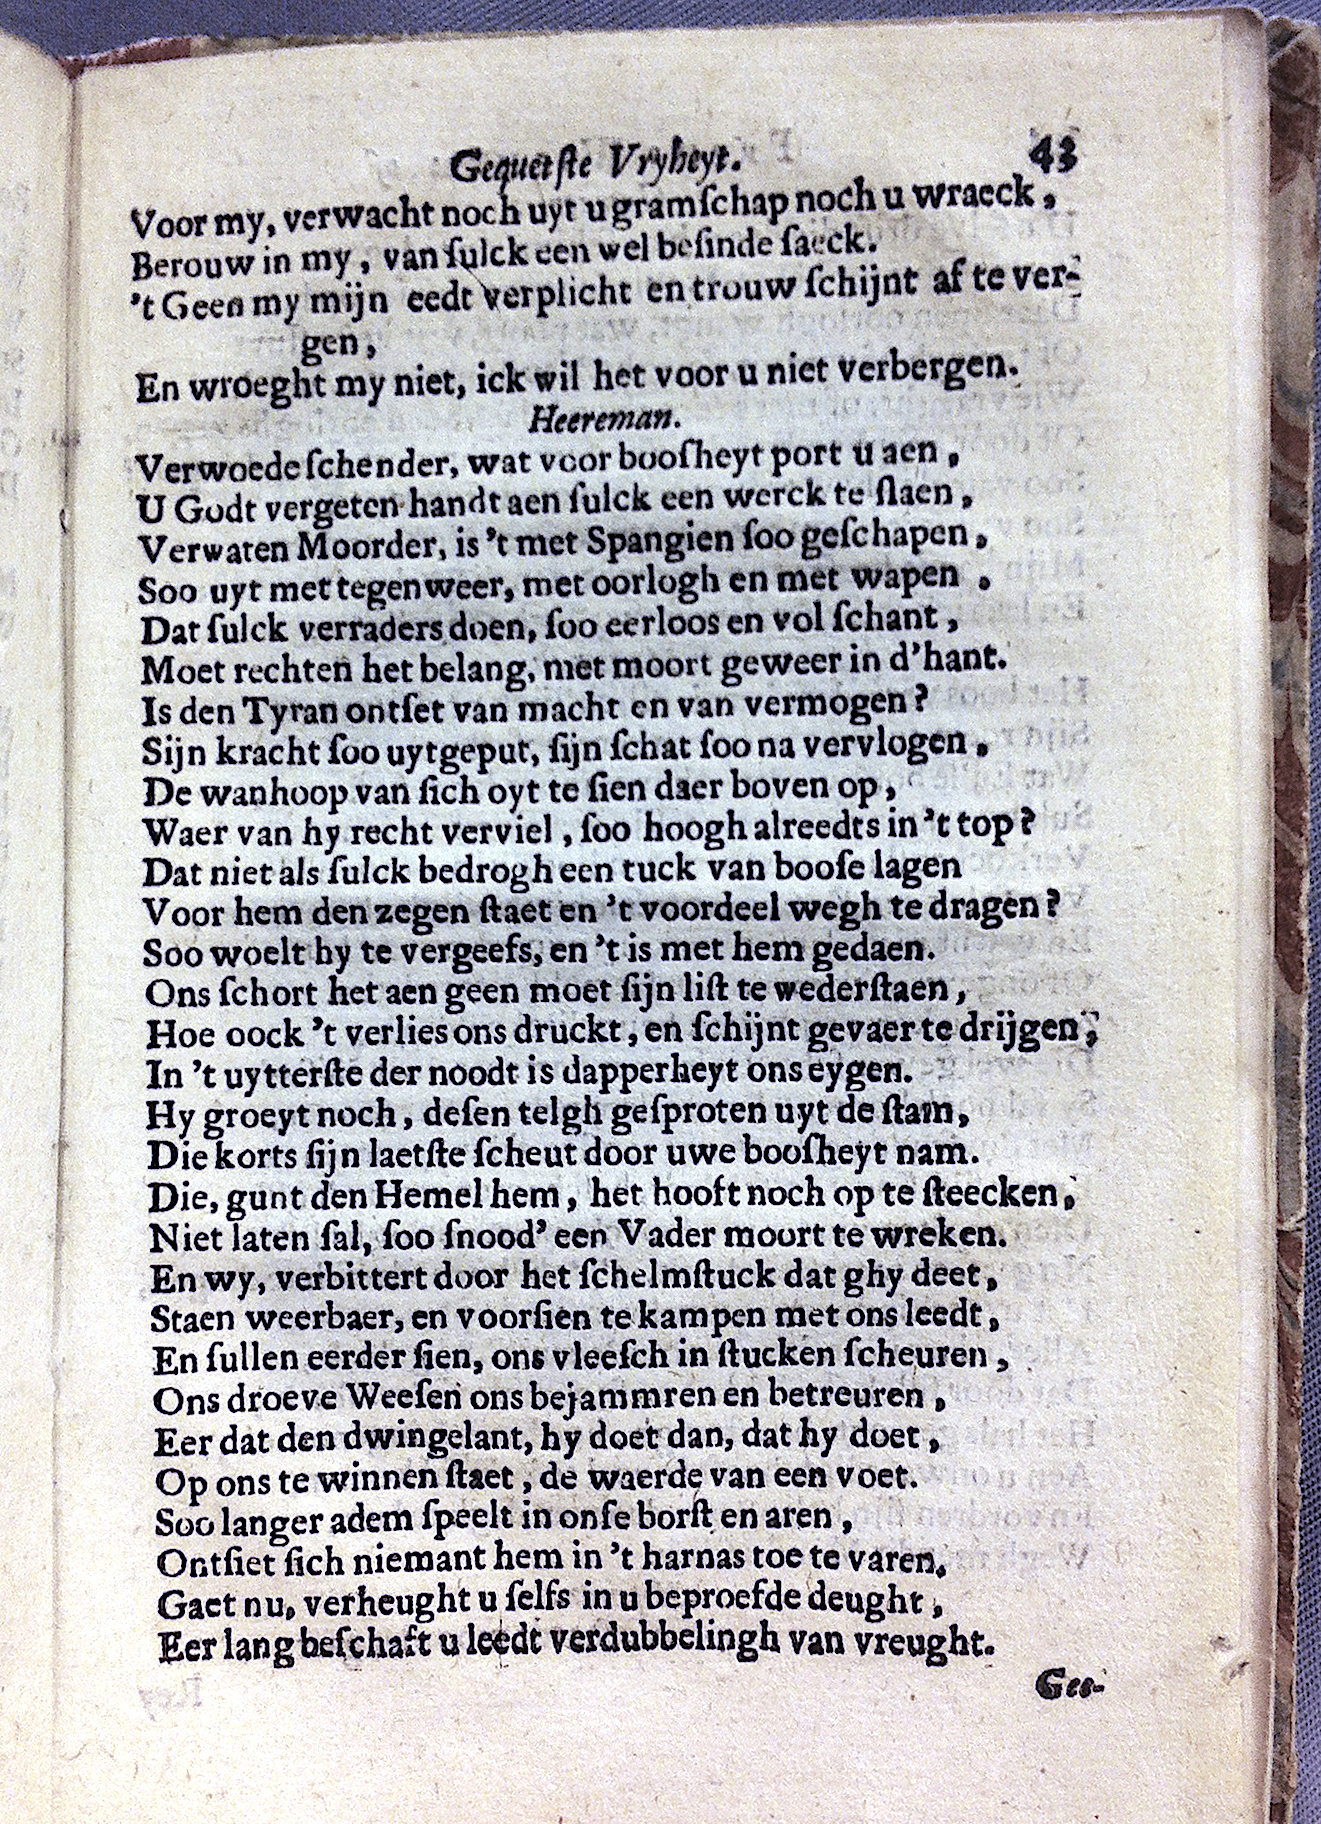 Gequetſte Vryheyt. 43
Voor my, verwacht noch uyt u gramſchap noch u wraeck,
Berouw in my, van ſulck een wel beſinde ſaeck.
't Geen my mijn eedt verplicht en trouw ſchijnt af te ver-
gen,
En wroeght my niet, ick wil het voor u niet verbergen.
Heereman.
Verwoede ſchender, wat voor booſheyt port u aen,
U Godt vergeten handt aen ſulck een werck te ſlaen,
Verwaten Moorder, is 't met Spangien ſoo geſchapen,
Soo uyt met tegenweer, met oorlogh en met wapen.
Dat ſulck verraders doen, ſoo eerloos en vol ſchant,
Moet rechten het belang, met moort geweer in d'hant.
Is den Tyran ontſet van macht en van vermogen?
Sijn kracht ſoo uytgeput, ſijn ſchat ſoo na vervlogen,
De wanhoop van ſich oyt te ſien daer boven op,
Waer van hy recht verviel, ſoo hoogh alreedts in 't top?
Dat niet als ſulck bedrogh een tuck van booſe lagen
Voor hem den zegen ſtaet en 't voordeel wegh te dragen?
Soo woelt hy te vergeefs, en 't is met hem gedaen.
Ons ſchort het aen geen moet ſijn liſt te wederſtaen,
Hoe oock 't verlies ons druckt, en ſchijnt gevaer te drijgen,
In 't uytterſte der noodt is dapperheyt ons eygen.
Hy groeyt noch, deſen telgh geſproten uyt de ſtam,
Die korts ſijn laetſte ſcheut door uwe booſheyt nam.
Die, gunt den Hemel hem, het hooft noch op te ſteecken,
Niet laten ſal, ſoo ſnood' een Vader moort te wreken.
En wy, verbittert door het ſchelmſtuck dat ghy deet,
Staen weerbaer, en voorſien te kampen met ons leedt,
En ſullen eerder ſien, ons vleeſch in ſtucken ſcheuren,
Ons droeve Weeſen ons bejammren en betreuren,
Eer dat den dwingelant, hy doet dan, dat hy doet,
Op ons te winnen ſtaet, de waerde van een voet.
Soo langer adem ſpeelt in onſe borſt en aren,
Ontſiet ſich niemant hem in 't harnas toe te varen.
Gaet nu, verheught u ſelfs in u beproefde deught,
Eer lang beſchaft u leedt verdubbelingh van vreught.
Gee-